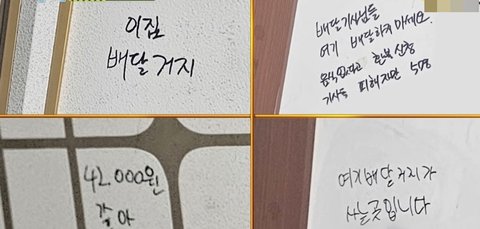 이집
배달거지
배달기사님들
여기 배달하지 마세요.
음식 없다고 환불 신청
기사들 피해자만 50명
42.000원
갚아
여기 배달거지가
사는곳입니다